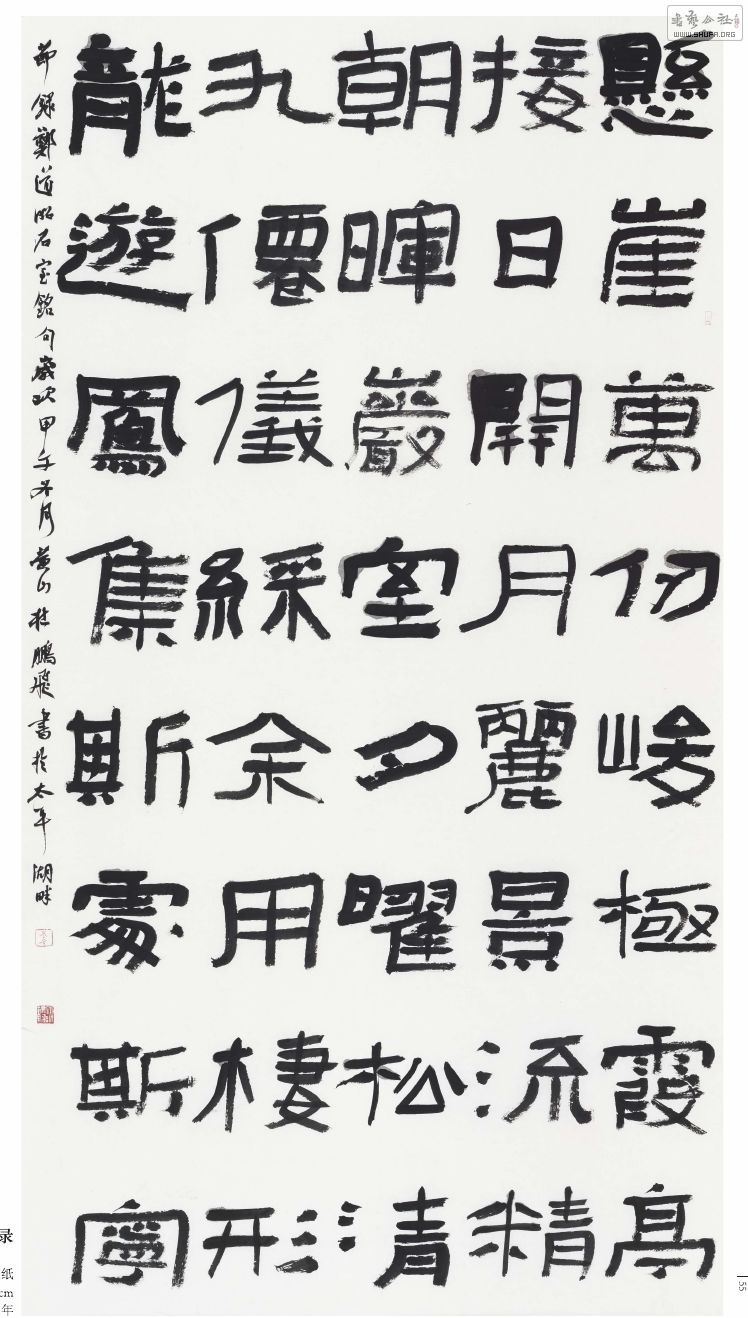 懸崖萬仞峻極霞亭
接日開月麗景流精
朝暉巖室夕曜松清
九僊儀綵余用棲形
龍遊鳳集斯處斯寧
節錄鄭道昭石室銘句歲次甲午冬月黄山杜鵬飛書於太平湖畔
书艺公社
WWW.SHUFA.ORG
录
纸
cm
年
55